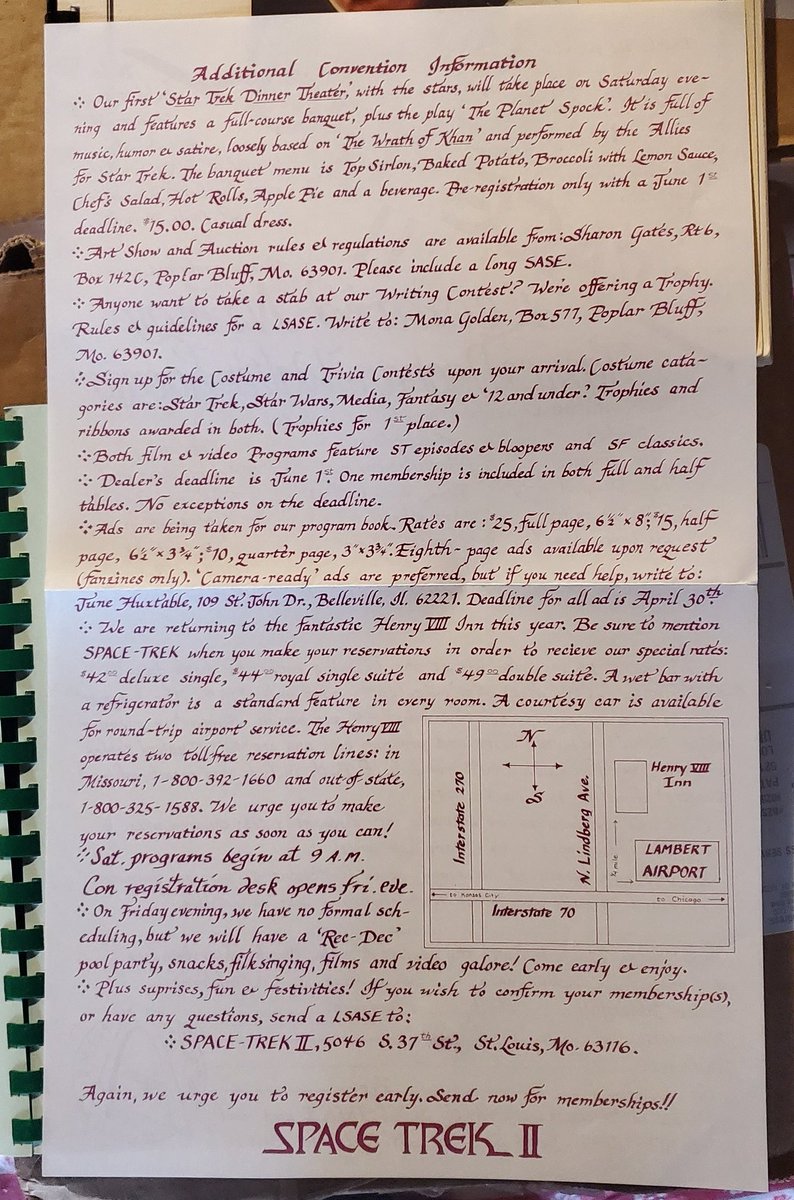 Additional Convention Information
Our first 'Star Trek Dinner Theater,' with the stars, will take place on Saturday eve-
ning and features a full-course banquet, plus the play 'The Planet Spock'. It is full of
music, humor & satire, loosely based on 'The Wrath of Khan' and performed by the Allies
for Star Trek. The banquet menu is Top Sirlon, Baked Potato, Broccoli with Lemon Sauce,
Chef's Salad, Hot Rolls, Apple Pie and a beverage. Pre-registration only with a June 1st
deadline. $15.00. Casual dress.
Art Show and Auction rules & regulations are available from: Sharon Gates, Rt 6,
Box 142C, Poplar Bluff, Mo. 63901. Please include a long SASE.
Anyone want to take a stab at our Writing Contest? We're offering a Trophy.
Rules & guidelines for a LSASE. Write to: Mona Golden, Box 577, Poplar Bluff,
Mo. 63901.
Sign up for the Costume and Trivia Contests upon your arrival. Costume cata-
gories are: Star Trek, Star Wars, Media, Fantasy & '12 and under'. Trophies and
ribbons awarded in both. (Trophies for 1st place.)
Both film & video Programs feature ST episodes & bloopers and SF classics.
Dealer's deadline is June 1st. One membership is included in both full and half
tables. No exceptions on the deadline.
Ads are being taken for our program book. Rates are: $25, full page, 6½" x 8"; $15, half
page, 6½" x 3¾"; $10, quarter page, 3" x 3¾". Eighth-page ads available upon request
(fanzines only). 'Camera-ready' ads are preferred, but if you need help, write to:
June Huxtable, 109 St. John Dr., Belleville, Il. 62221. Deadline for all ad is April 30th.
We are returning to the fantastic Henry VIII Inn this year. Be sure to mention
SPACE-TREK when you make your reservations in order to recieve our special rates:
$42.00 deluxe single, $44.00 royal single suite and $49.00 double suite. A wet bar with
a refrigerator is a standard feature in every room. A courtesy car is available
for round-trip airport service. The Henry VIII
operates two toll-free reservation lines: in
Missouri, 1-800-392-1660 and out-of-state,
1-800-325-1588. We urge you to make
your reservations as soon as you can!
Sat. programs begin at 9 A.M.
Con registration desk opens fri. eve.
On Friday evening, we have no formal sch-
eduling, but we will have a 'Rec-Dec'
pool party, snacks, filksinging, films and video galore! Come early & enjoy.
N
S
Interstate 270
N. Lindberg Ave.
Henry VIII
Inn
¼ mile
LAMBERT
AIRPORT
to Kansas City
to Chicago
Interstate 70
Plus suprises, fun & festivities! If you wish to confirm your membership(s),
or have any questions, send a LSASE to:
SPACE-TREK II, 5046 S. 37th St., St. Louis, Mo. 63116.
Again, we urge you to register early. Send now for memberships!!
SPACE TREK II